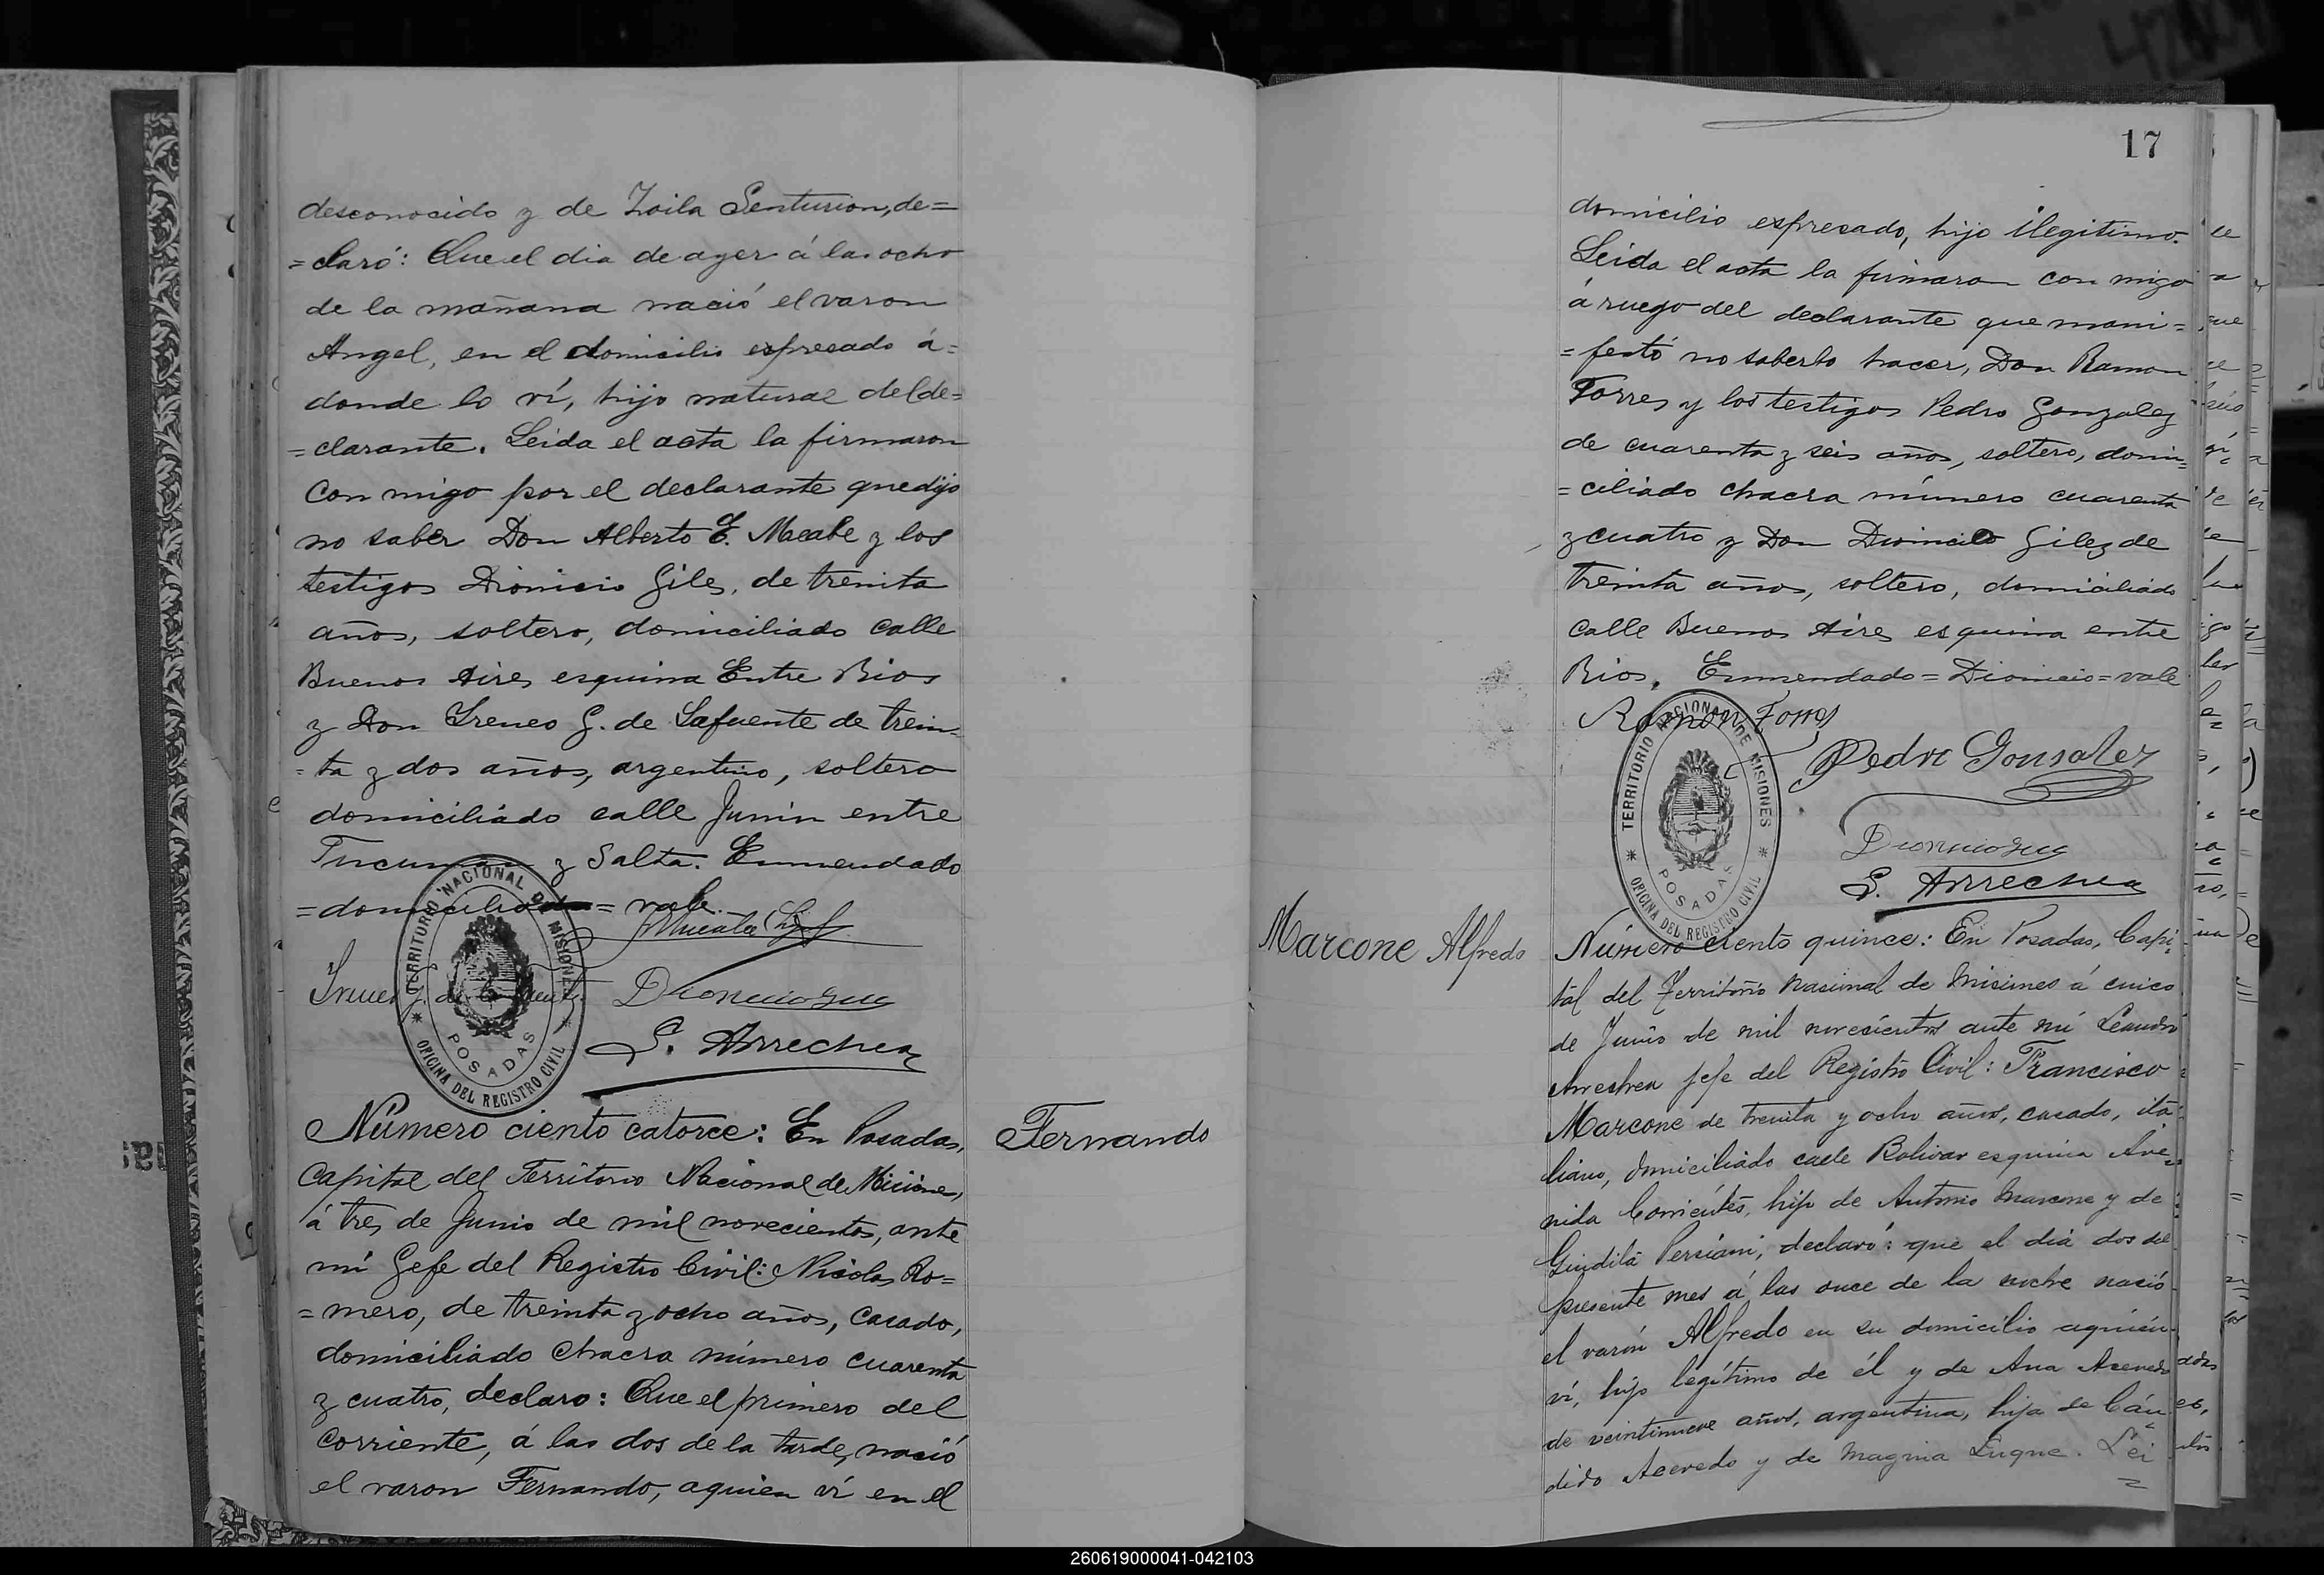 desconocido y de Zoila Senturion, de=
=claró: Que el dia de ayer á las ocho
de la mañana nació el varon
Angel, en el domicilio espresado á=
donde lo ví, hijo natural del de=
=clarante. Leida el acta la firmaron
con migo por el declarante que dijo
no saber Don Alberto E. Mecabe y los
testigos Dionicio Giles, de treinta
años, soltero, domiciliado calle
Buenos Aires esquina Entre Rios
y Don Ireneo G. de Lafuente de trein=
=ta y dos años, argentino, soltero
domiciliado calle Junin entre
Tucuman y Salta. Enmendado
=domiciliado= vale.
TERRITORIO NACIONAL DE MISIONES
POSADAS
OFICINA DEL REGISTRO CIVIL
L. Arrechea
Número ciento catorce: En Posadas,
Capital del Territorio Nacional de Misiones,
á tres de Junio de mil novecientos, ante
mí Gefe del Registro Civil: Nicolas Ro=
=mero, de treinta y ocho años, casado,
domiciliado Chacra número cuarenta
y cuatro, declaro: Que el primero del
corriente, á las dos de la tarde, nació
el varon Fernando, aquien ví en el
Fernando
17
domicilio espresado, hijo ilegitimo.
Leida el acta la firmaron con migo
á ruego del declarante que mani=
=festó no saberlo hacer, Don Ramon
Torres y los testigos Pedro Gonzalez
de cuarenta y seis años, soltero, domi=
=ciliado chacra número cuarenta
y cuatro y Don Dionicio Giles de
treinta años, soltero, domiciliado
calle Buenos Aires esquina entre
Rios. Enmendado=Dionicio=vale
Ramon Torres
TERRITORIO NACIONAL DE MISIONES
POSADAS
OFICINA DEL REGISTRO CIVIL
Pedro Gonsalez
L. Arrechea
Marcone Alfredo
Número ciento quince: En Posadas, Capi=
tal del Territorio Nacional de Misiones á cinco
de Junio de mil novecientos ante mí Leandro
Arrechea jefe del Registro Civil: Francisco
Marcone de treinta y ocho años, casado, ita=
liano, domiciliado calle Bolivar esquina Ave=
nida Corrientes, hijo de Antonio Marcone y de
Giudita Persiani, declaró: que el dia dos del
presente mes á las once de la noche nació
el varón Alfredo en su domicilio aquién
ví, hijo legítimo de él y de Ana Acevedo
de veintinueve años, argentina, hija de Cán=
dido Acevedo y de Magna Luque. Lei=
260619000041-042103